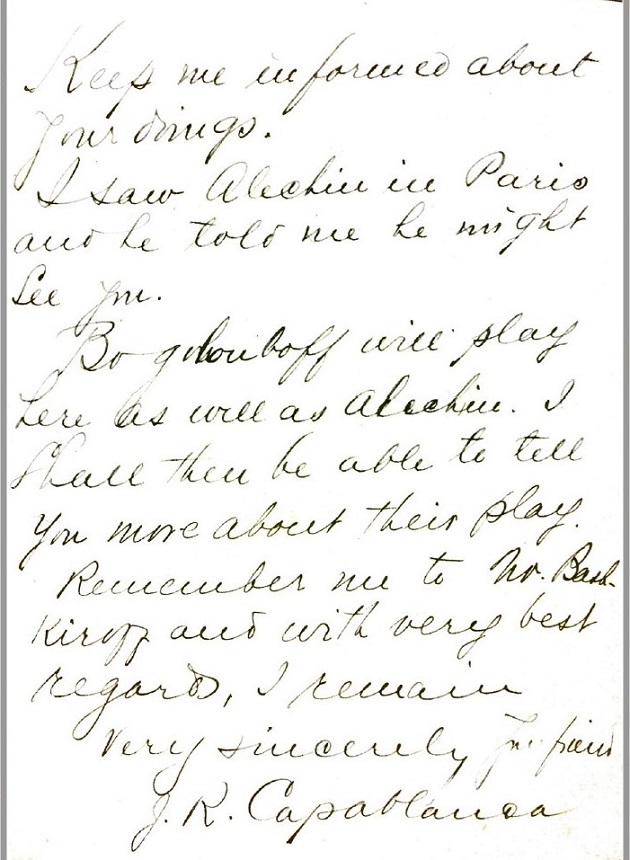 Keep me informed about
your doings.
I saw Alechin in Paris
and he told me he might
see you.
Bogoluboff will play
here as well as Alechin. I
shall then be able to tell
you more about their play.
Remember me to Mr. Bash-
kiroff and with very best
regards, I remain
Very sincerely your friend
J. R. Capablanca